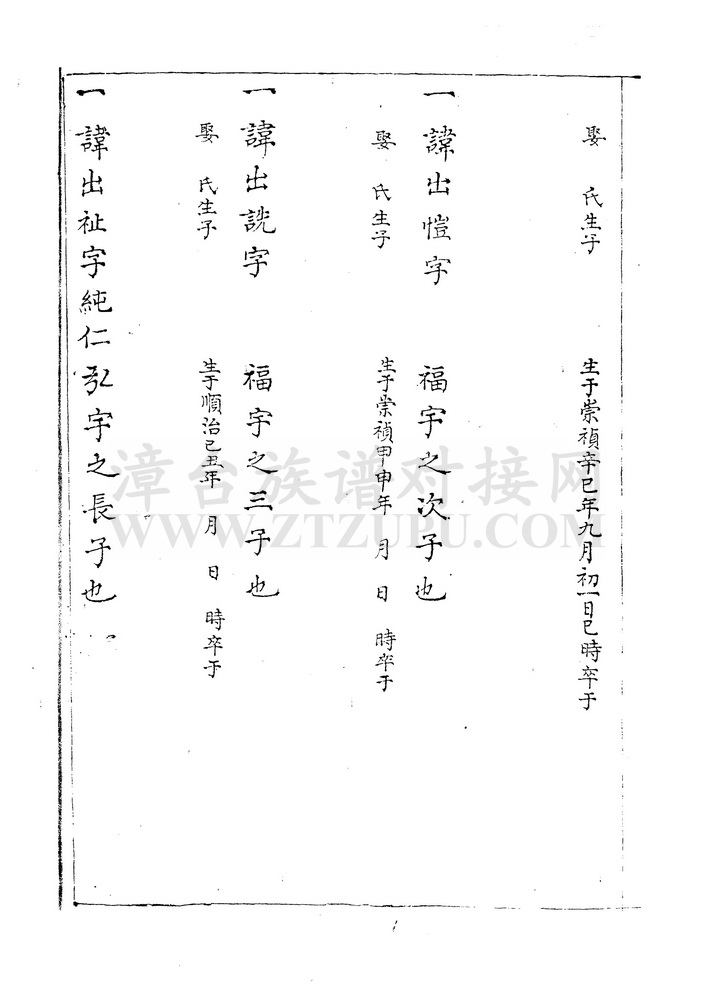 娶　氏生子　生于崇禎辛巳年九月初一日巳時卒于
一諱出愷字　福宇之次子也
娶　氏生子　生于崇禎甲申年　月　日　時卒于
一諱出詵字　福宇之三子也
娶　氏生子　生于順治己丑年　月　日　時卒于
一諱出祉字純仁弘宇之長子也
漳台族谱对接网
WWW.ZTZUPU.COM